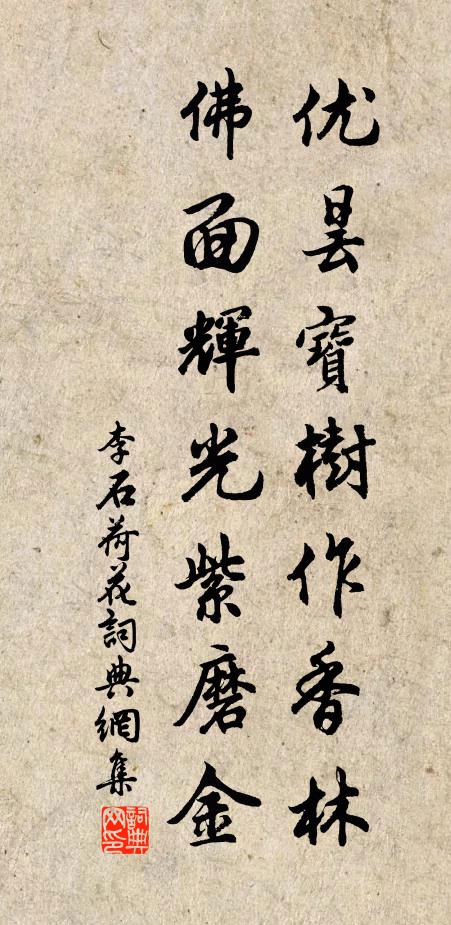 优昙寶樹作香林
佛面輝光紫磨金
李石荷花詞典網集
詞典网印